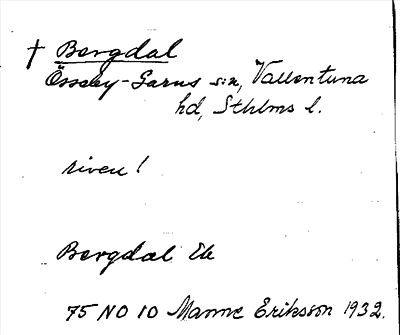 † Bergdal
Össeby-Garns s:n, Vallentuna
hd, Sthlms l.
riven!
Bergdal Ek
75 NO 10 Manne Eriksson 1932.